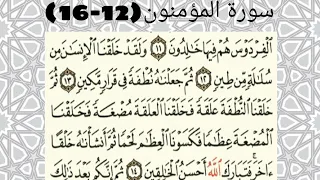 سورة المؤمنون (12-16)
ٱلْفِرْدَوْسَ هُمْ فِيهَا خَٰلِدُونَ ١١ وَلَقَدْ خَلَقْنَا ٱلْإِنسَٰنَ مِن
سُلَٰلَةٍ مِّن طِينٍ ١٢ ثُمَّ جَعَلْنَٰهُ نُطْفَةً فِى قَرَارٍ مَّكِينٍ ١٣
خَلَقْنَا ٱلنُّطْفَةَ عَلَقَةً فَخَلَقْنَا ٱلْعَلَقَةَ مُضْغَةً فَخَلَقْنَا
ٱلْمُضْغَةَ عِظَٰمًا فَكَسَوْنَا ٱلْعِظَٰمَ لَحْمًا ثُمَّ أَنشَأْنَٰهُ خَلْقًا
ءَاخَرَ فَتَبَارَكَ ٱللَّهُ أَحْسَنُ ٱلْخَٰلِقِينَ ١٤ ثُمَّ إِنَّكُم بَعْدَ ذَٰلِكَ